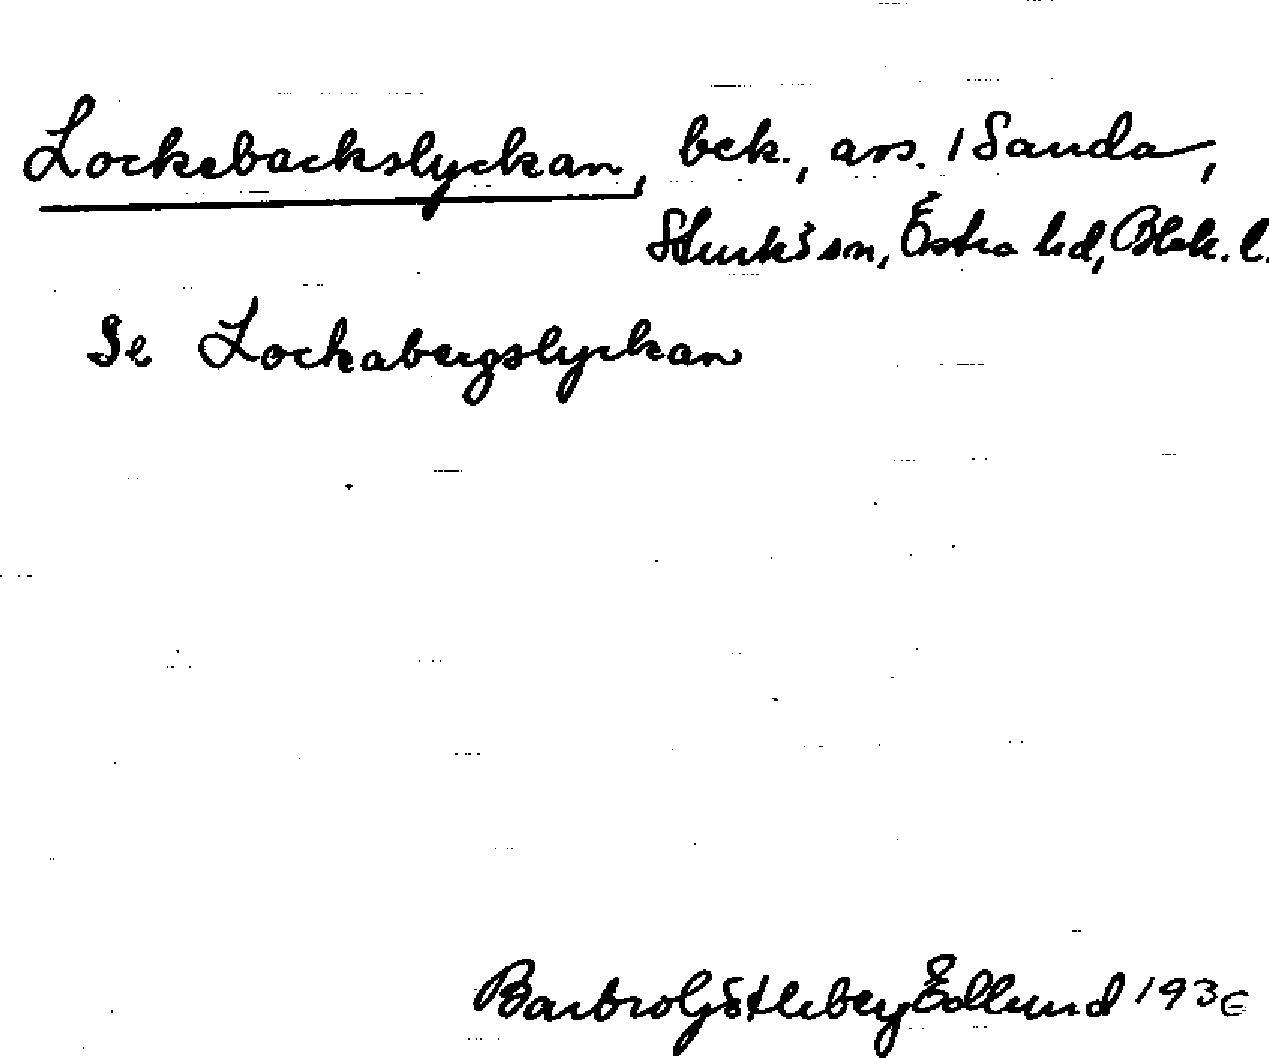 Lockebackslyckan, bek., avs. 1 Sanda,
Sturkö sn, Östra hd, Blek. l.
Se Lockabergslyckan
Barbro Götleberg Edlund 1936